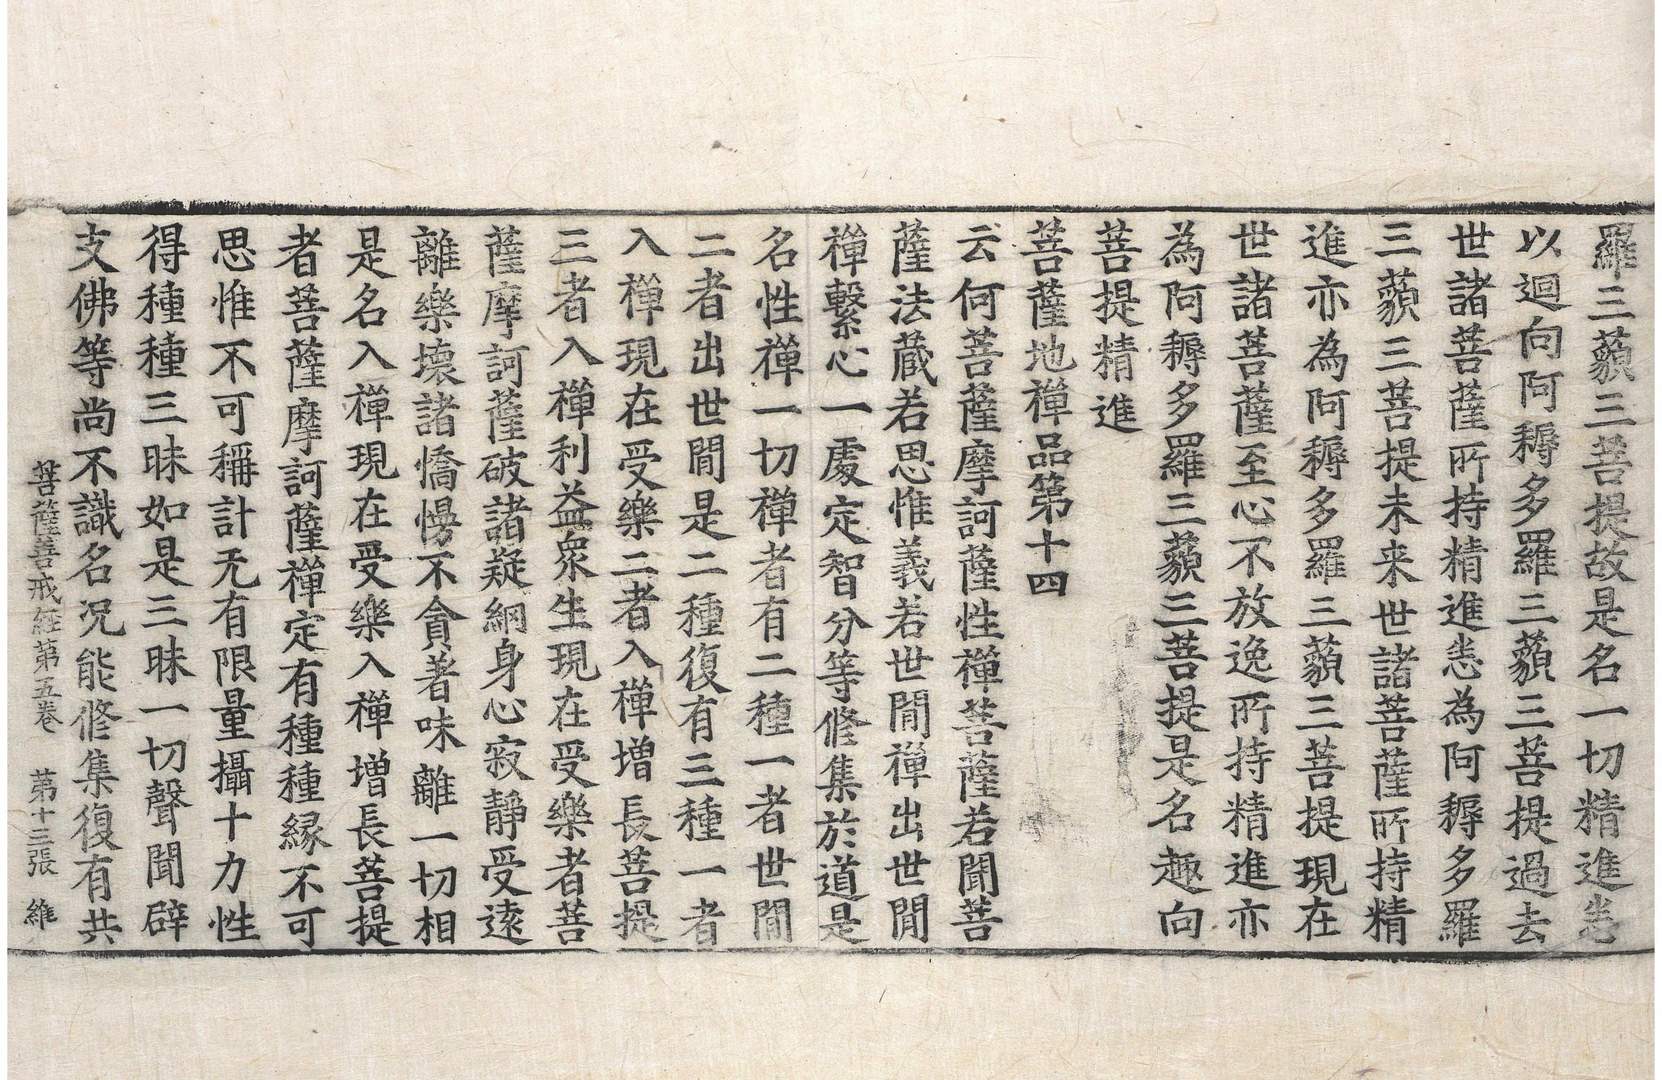 羅三藐三菩提故是名一切精進悉
以迴向阿耨多羅三藐三菩提過去
世諸菩薩所持精進悉為阿耨多羅
三藐三菩提未来世諸菩薩所持精
進亦為阿耨多羅三藐三菩提現在
世諸菩薩至心不放逸所持精進亦
為阿耨多羅三藐三菩提是名趣向
菩提精進
菩薩地禪品第十四
云何菩薩摩訶薩性禪菩薩若聞菩
薩法蔵若思惟義若世閒禪出世閒
禪繫心一處定智分等修集於道是
名性禪一切禪者有二種一者世閒
二者出世閒是二種復有三種一者
入禪現在受樂二者入禪增長菩提
三者入禪利益衆生現在受樂者菩
薩摩訶薩破諸疑網身心寂靜受遠
離樂壞諸憍慢不貪著味離一切相
是名入禪現在受樂入禪增長菩提
者菩薩摩訶薩禪定有種種緣不可
思惟不可稱計无有限量攝十力性
得種種三昧如是三昧一切聲聞辟
支佛等尚不識名況能修集復有共
菩薩善戒経第五卷 第十三張 維